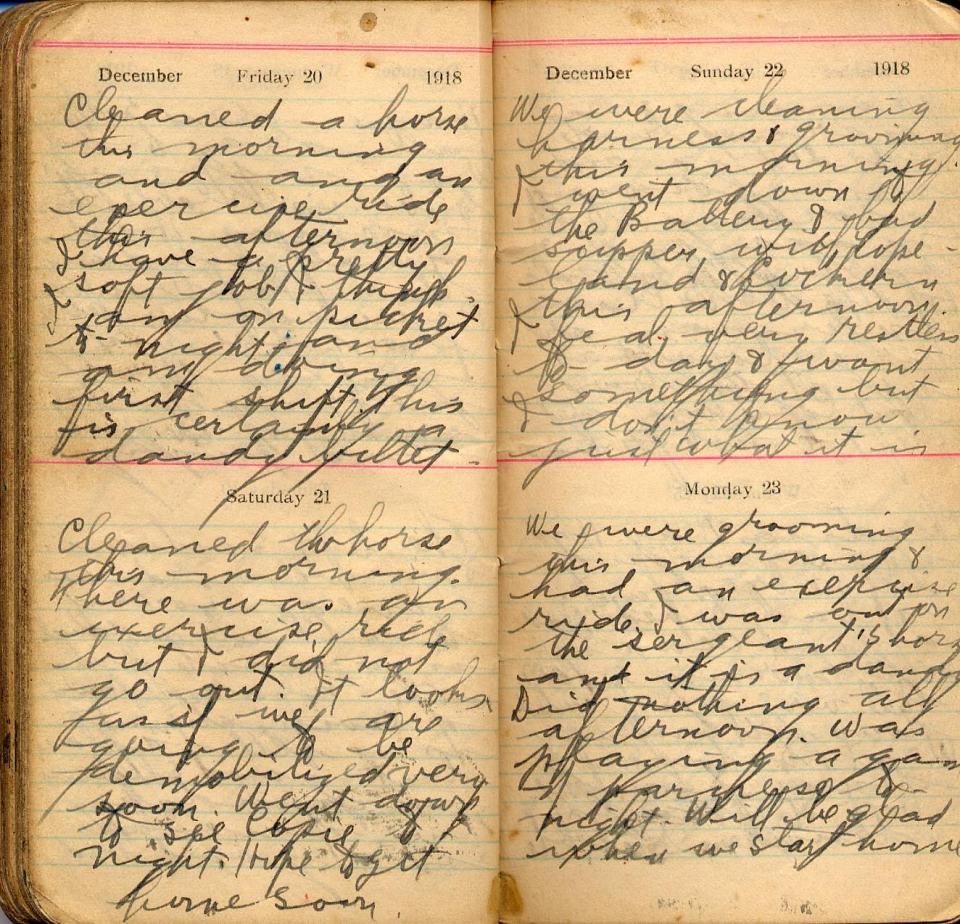 December Friday 20 1918
Cleaned a horse
this morning
and and an
exercise ride
this afternoon
I have a pretty
soft job I think.
I am on picket
to-night and
am doing
first shift, this
is certainly a
dandy billet.
Saturday 21
Cleaned horse
this morning.
There was an
exercise ride
but I did not
go out. It looks
as if we are
going to be
demobilized very
soon. Went down
to see to
night. Hope to get
home soon.
December Sunday 22 1918
We were cleaning
harness & grooming
this morning.
I went down to
the Battery & had
supper with
&
this afternoon.
I feel very restless
to-day & I want
something but
I don't know
just what it is
Monday 23
We were grooming
this morning &
had an exercise
ride. I was out on
the sergeant's hors
and it is a dandy
Did nothing all
afternoon. Was
playing a gam
of to-
night. Will be glad
when we start home